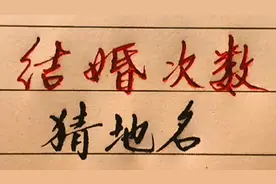 结婚次数
猜地名